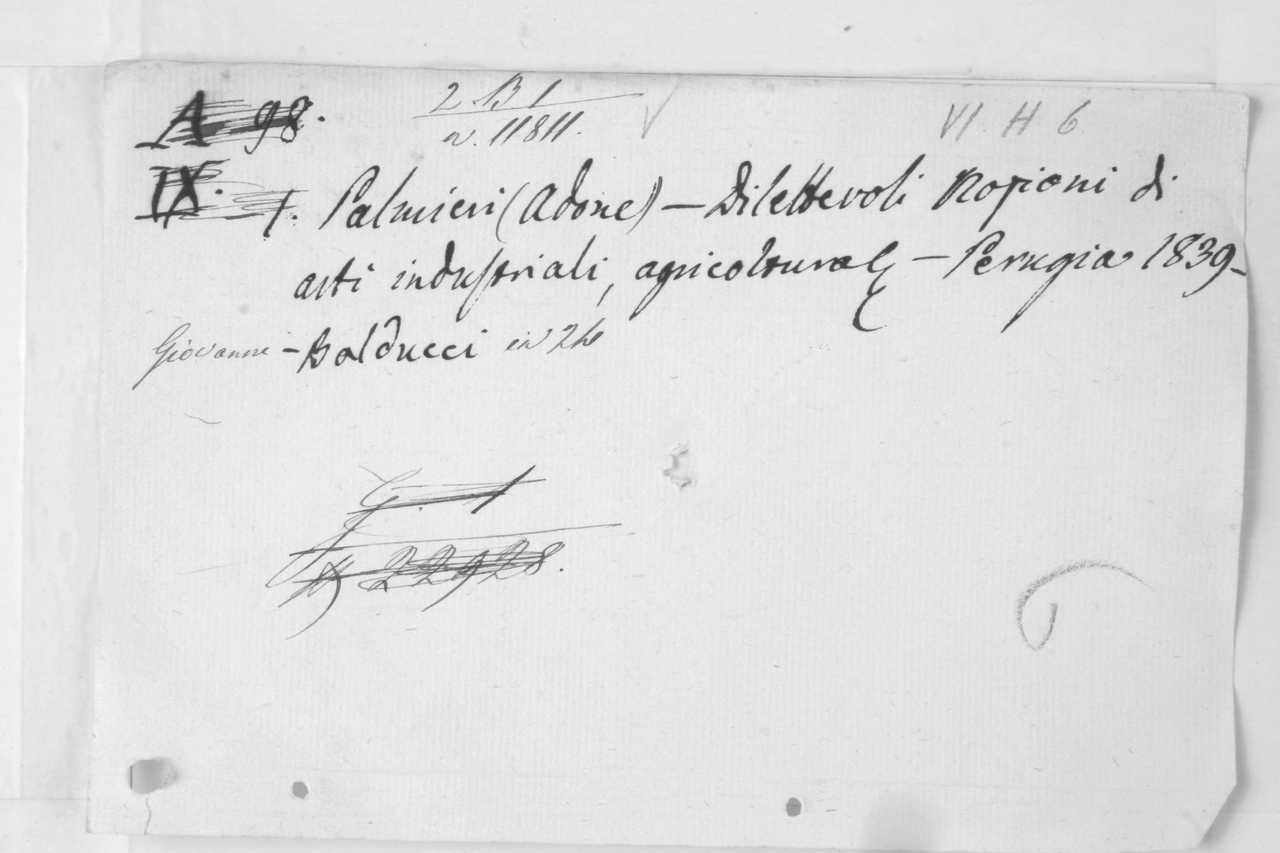 A 98.
2 B 1
n. 11811.
VI H 6
IX. 1. Palmieri (Adone) — Dilettevoli Nozioni di
arti industriali, agricoltura &c — Perugia 1839 -
Giovanni - Balducci in 24°
G. 1
22928.
6